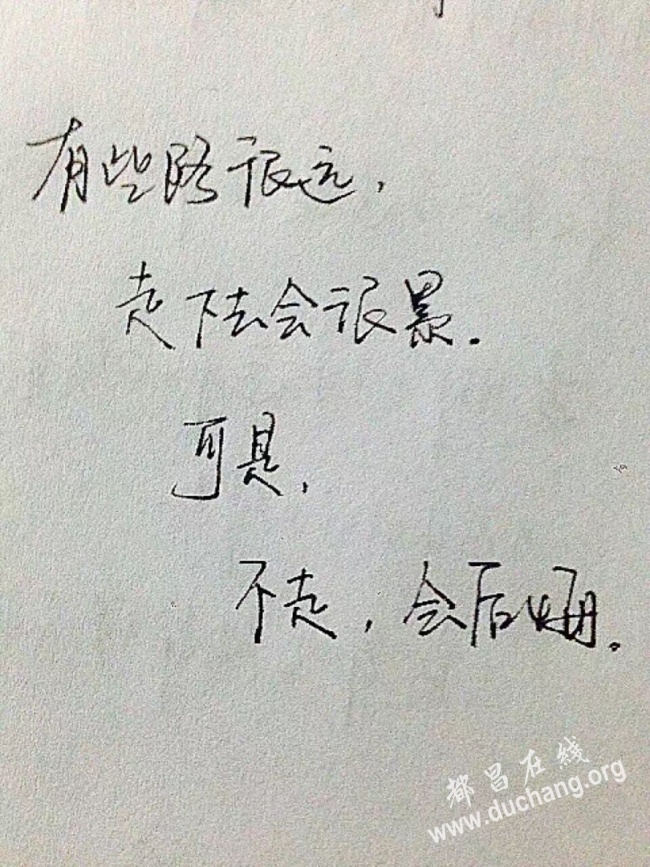 有些路很远，
走下去会很累．
可是，
不走，会后悔。
都昌在线
www.duchang.org